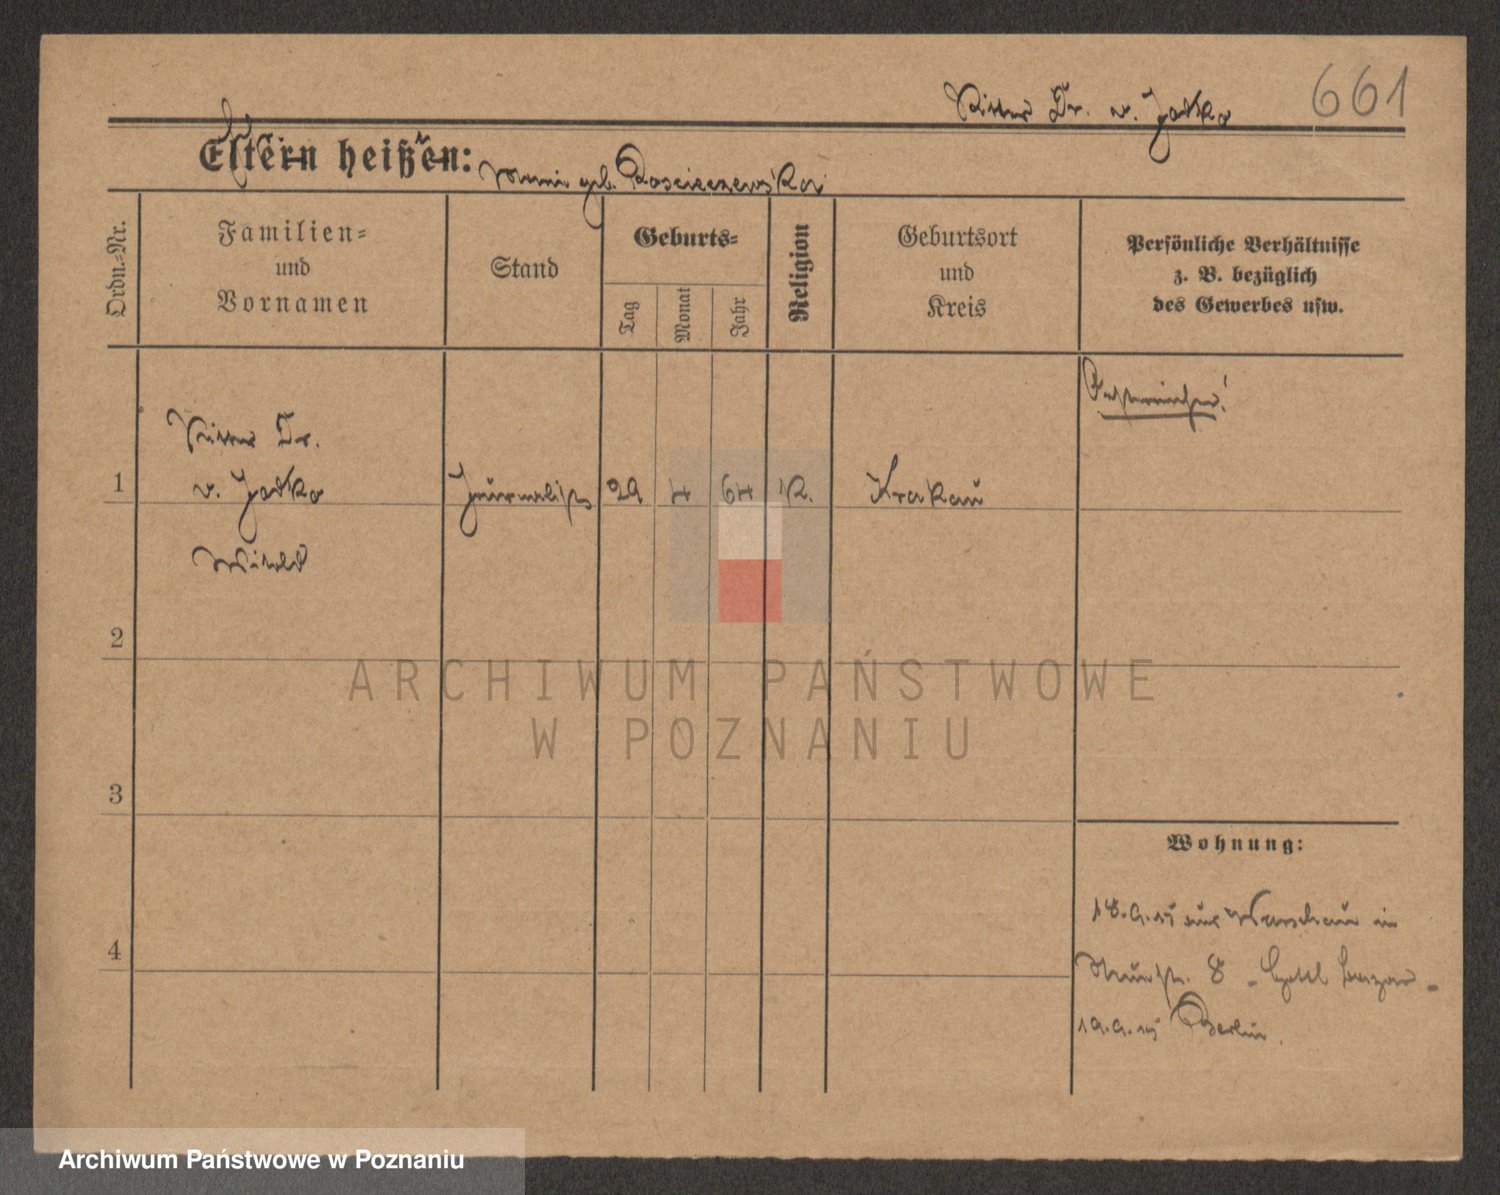 Ritter Dr. v. Jodko 661
Eltern heißen:
geb. Koscieczewska
Ordn.-Nr.
Familien-
und
Vornamen
Stand
Geburts-
Tag
Monat
Jahr
Religion
Geburtsort
und
Kreis
Persönliche Verhältnisse
z. B. bezüglich
des Gewerbes usw.
Oesterreicher!
Ritter Dr.
1 v. Jodko Journalist 29 7 64 K. Krakau
Witold
2
ARCHIWUM PAŃSTWOWE
W POZNANIU
3
Wohnung:
4
18.9.15 aus Warschau in
8 - Hotel Bazar -
19.9.15 Berlin.
Archiwum Państwowe w Poznaniu